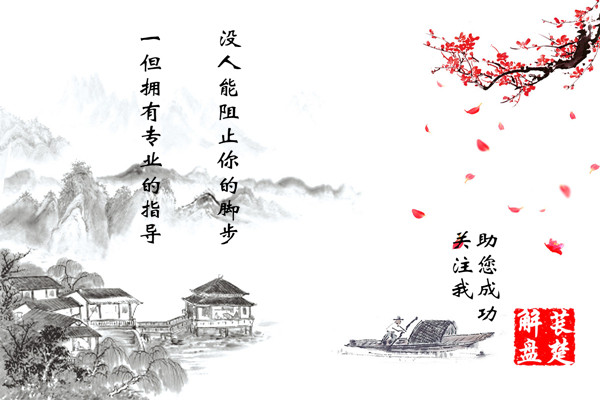 一但拥有专业的指导
没人能阻止你的脚步
关注我
助您成功
苌楚
解盘